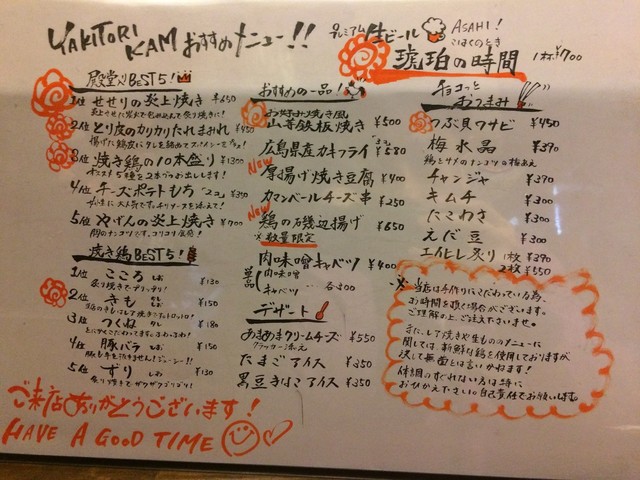 YAKITORI KAM おすすめメニュー!!
プレミアム生ビール ASAHI!
こはくのとき
琥珀の時間 1杯 ¥700
殿堂入りBEST5!
1位 せせりの炎上焼き ¥650
2位 とり皮のカリカリたれまみれ ¥450
3位 焼き鶏の10本盛り ¥1300
オススメ5種を2本づつお出しします!
4位 チーズポテトもち ¥390
5位 やげんの炎上焼き ¥700
焼き鶏BEST5!
1位 こころ しお ¥130
2位 きも ¥150
3位 つくね ¥180
4位 豚バラ しお ¥150
5位 ずり しお ¥130
おすすめの一品!
お好み焼き風
山芋鉄板焼き ¥500
広島県産カキフライ ¥580
New 厚揚げ焼き豆腐 ¥400
カマンベールチーズ串 ¥250
New 鶏の磯辺揚げ ¥650
※数量限定
肉味噌キャベツ ¥400
単品 肉味噌
キャベツ 各¥200
デザート
あまあまクリームチーズ ¥550
クラッカー添え
たまごアイス ¥350
黒豆きなこアイス ¥350
チョコっとおつまみ
つぶ貝ワサビ ¥450
梅水晶 ¥390
鶏とサメのナンコツの梅あえ
チャンジャ ¥390
キムチ ¥300
たこわさ ¥300
えだ豆 ¥300
エイヒレ炙り 1枚 ¥390
2枚 ¥550
※当店は手作りにこだわっている為、
お時間を頂く場合がございます。
ご理解の上、ご注文下さいませ。
また、レア焼きや生もののメニューに
関しては、新鮮な鶏を使用しておりますが
決して無菌とは言いかねます!
体調のすぐれない方は特に
おひかえ下さい。自己責任でお願いします。
ご来店ありがとうございます!
HAVE A GOOD TIME